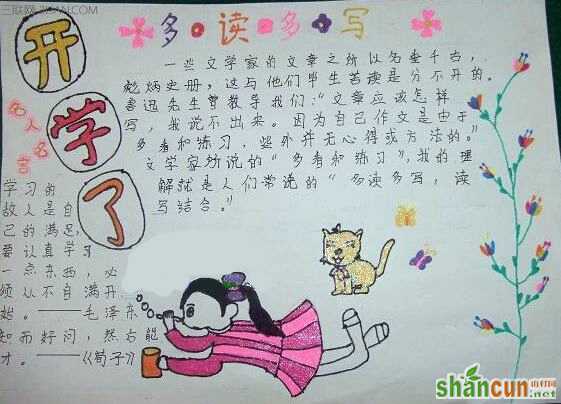 三联网 3LIAN.COM
开学了
多·读·多·写
一些文学家的文章之所以名垂千古,
彪炳史册,这与他们毕生苦读是分不开的。
鲁迅先生曾教导我们:“文章应该怎样
写,我说不出来。因为自己作文是由于
多看和练习,些外并无心得或方法的。”
文学家所说的“多看和练习”,我的理
解就是人们常说的“多读多写,读
写结合。”
名人名言
学习的
故人是自
己的满足,
要认真学习
一点东西,必
须从不自满开
始。——毛泽东
知而好问,然后能
才。——《荀子》
shancun
山村网
.net